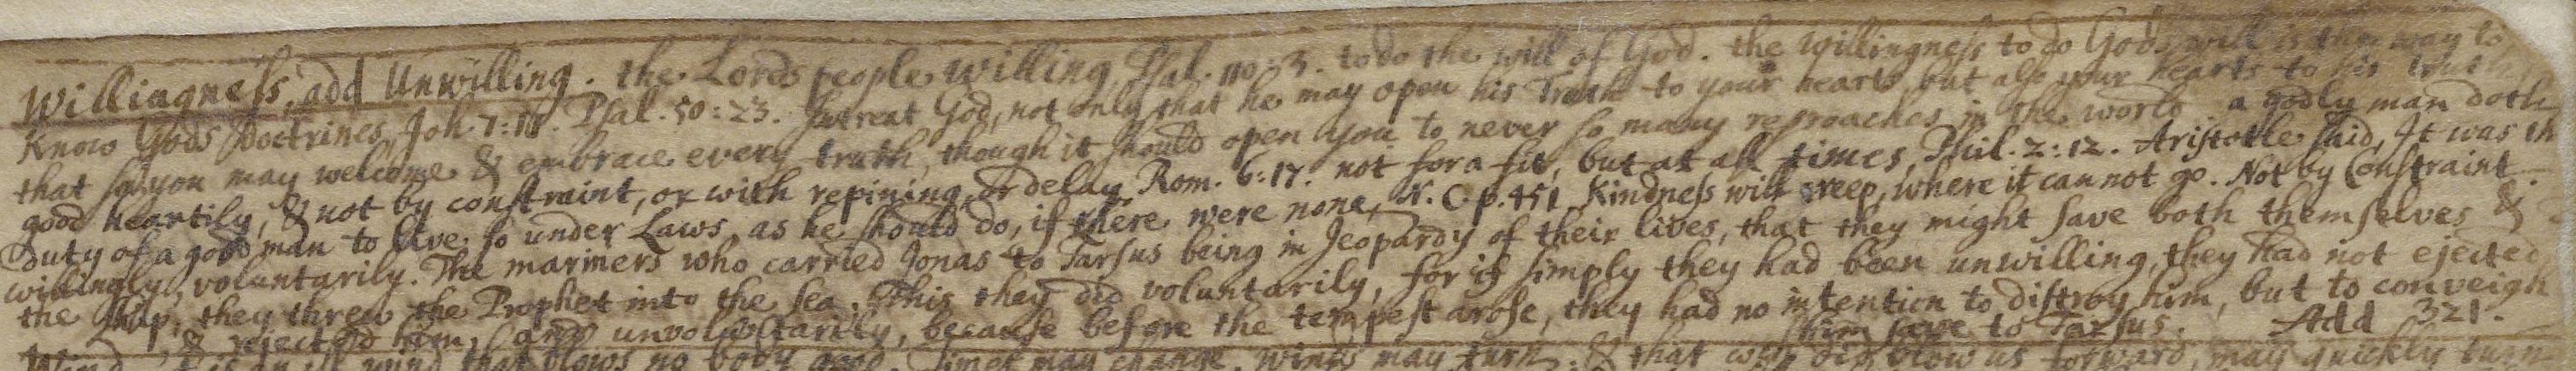 Willingness, add Unwilling. the Lords people willing, Psal. 110:3. to do the will of God. the willingness to do Gods will is the way to
Know Gods Doctrines, Joh. 7:17. Psal. 50:23. Intreat God, not only that he may open his Truth to your hearts, but also your hearts to his truth,
that so you may welcome & embrace every truth, though it should open you to never so many reproaches in the world. a godly man doth
good heartily, & not by constraint, or with repining, or delay, Rom. 6:17. not for a fit, but at all times, Phil. 2:12. Aristotle said, It was th
duty of a good man to live so under Laws, as he should do, if there were none, N. C. p. 451. Kindness will creep, where it can not go. Not by Constraint.
willingly, voluntarily. The mariners who carried Jonas to Tarsus being in Jeopardy of their lives, that they might save both themselves &
the ship, they threw the Prophet into the sea. This they did voluntarily, for if simply they had been unwilling, they had not ejected
& rejected him, and unvoluntarily, because before the tempest arose, they had no intention to distroy him, but to conveigh
him save to Tarsus. Add 321.
Wind, it is an ill wind that blows no body good. Times may change, winds may turn. & that did blow us forward, may quickly turn